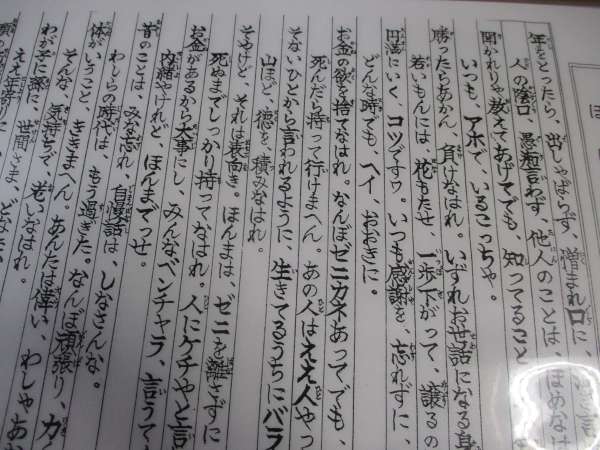 年をとったら、出しゃばらず、憎まれ口に、
人の陰口、愚痴言わず、他人のことは、ほめなは
聞かれりゃ教えてあげてでも、知ってること
いつも、アホで、いるこっちゃ。
勝ったらあかん、負けなはれ。いずれお世話になる身
若いもんには、花もたせ、一歩下がって、譲るの
円満にいく、コツですワ。いつも感謝を、忘れずに、
どんな時でも、ヘイ、おおきに。
お金の欲を捨てなはれ。なんぼゼニカネあってでも、
死んだら持って行けまへん。あの人はええ人やっ
そないひとから言われるように、生きてるうちにバラ
山ほど、徳を、積みなはれ。
そやけど、それは表向き。ほんまは、ゼニを離さずに
死ぬまでしっかり持ってなはれ。人にケチやと言
お金があるから大事にし、みんなベンチャラ、言うて
内緒やけれど、ほんまでっせ。
昔のことは、みな忘れ、自慢話は、しなさんな。
わしらの時代は、もう過ぎた。なんぼ頑張り、力
体がいうこと、ききまへん。あんたは偉い、わしゃあか
そんな、気持ちで、老しなはれ。
わが子、孫に、世間さま、どなた
ええ年寄りに